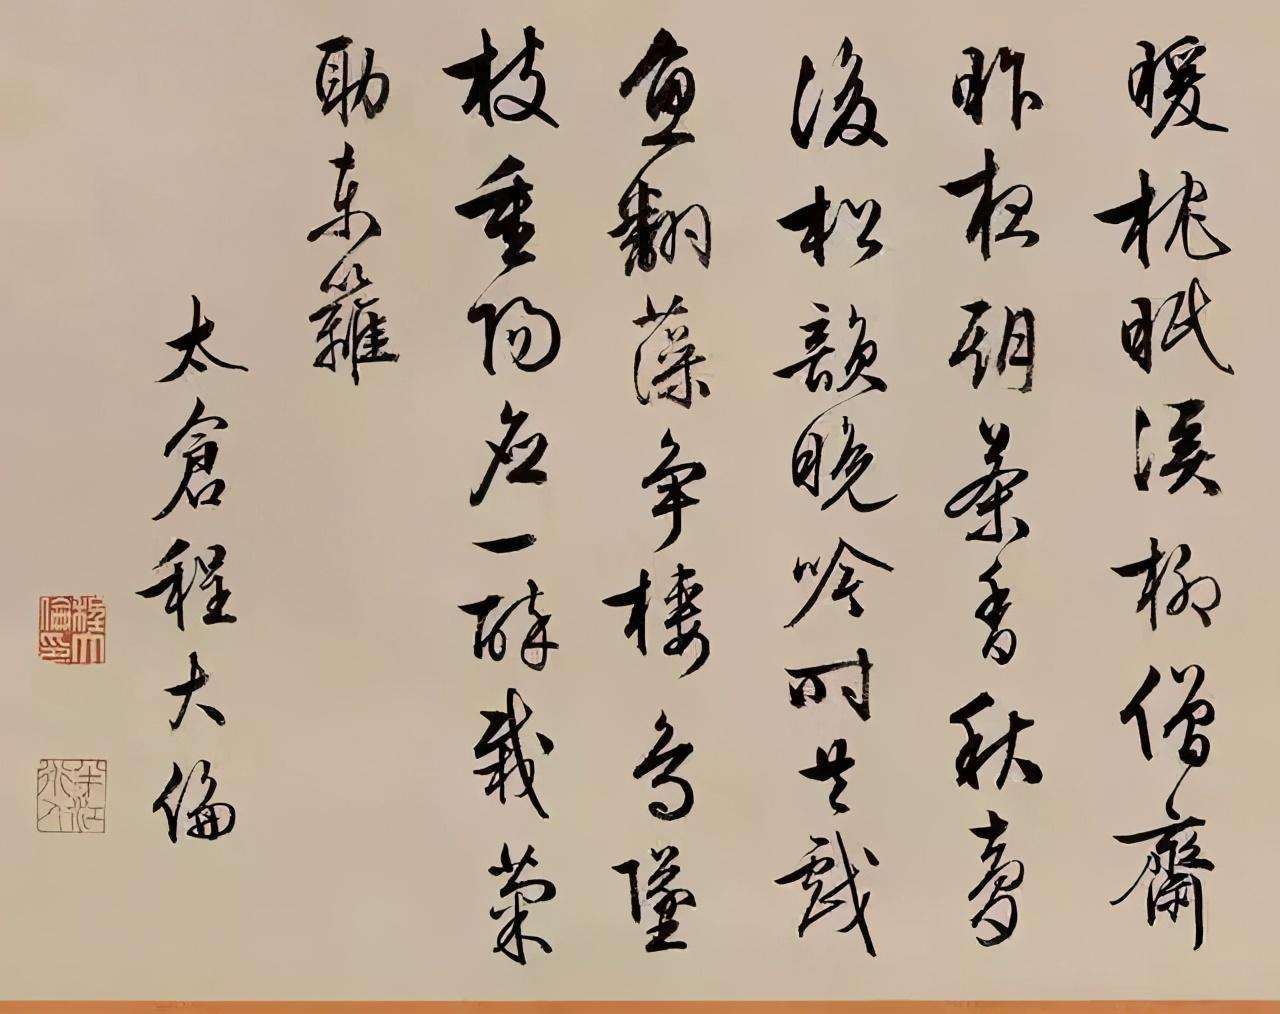 暖枕眠溪柳僧齋
昨夜期茶香秋夢
後松韻晚吟時共戲
魚翻藻爭棲鳥墜
枝重陽應一醉栽菊
助東籬
太倉程大倫
程大倫印